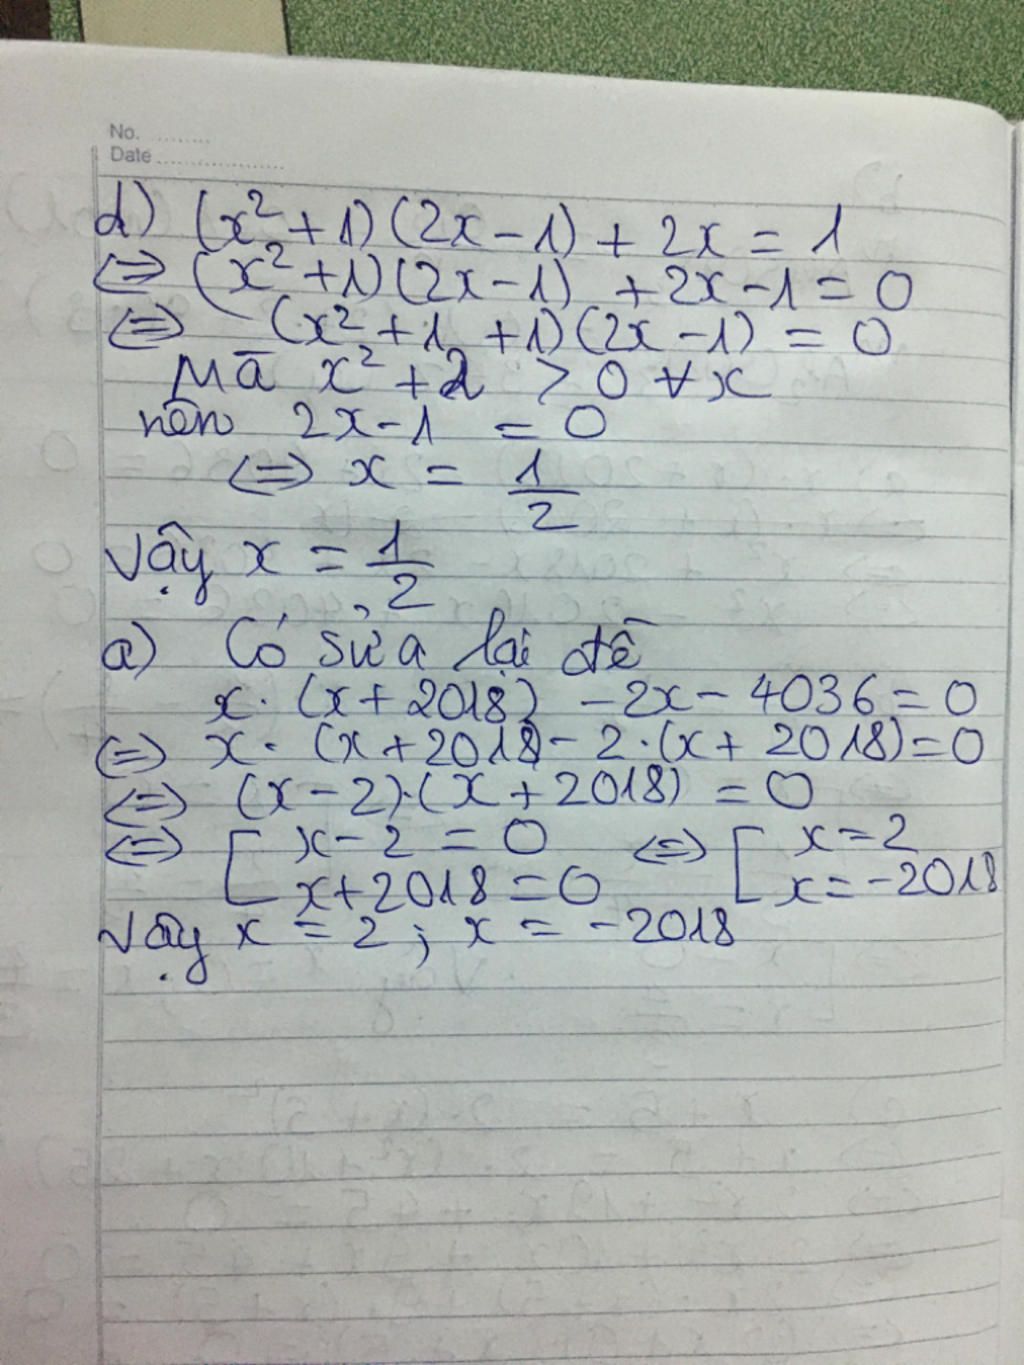 No. ........
Date ..................
d) (x² + 1) (2x - 1) + 2x = 1
⇔ (x² + 1) (2x - 1) + 2x - 1 = 0
⇔ (x² + 1 + 1) (2x - 1) = 0
Mà x² + 2 > 0 ∀ x
nên 2x - 1 = 0
⇔ x = 1/2
Vậy x = 1/2
a) Có sửa lại đề
x . (x + 2018) - 2x - 4036 = 0
⇔ x . (x + 2018) - 2 . (x + 2018) = 0
⇔ (x - 2) . (x + 2018) = 0
⇔ [ x - 2 = 0 ⇔ [ x = 2
x + 2018 = 0 x = -2018
Vậy x = 2 ; x = -2018